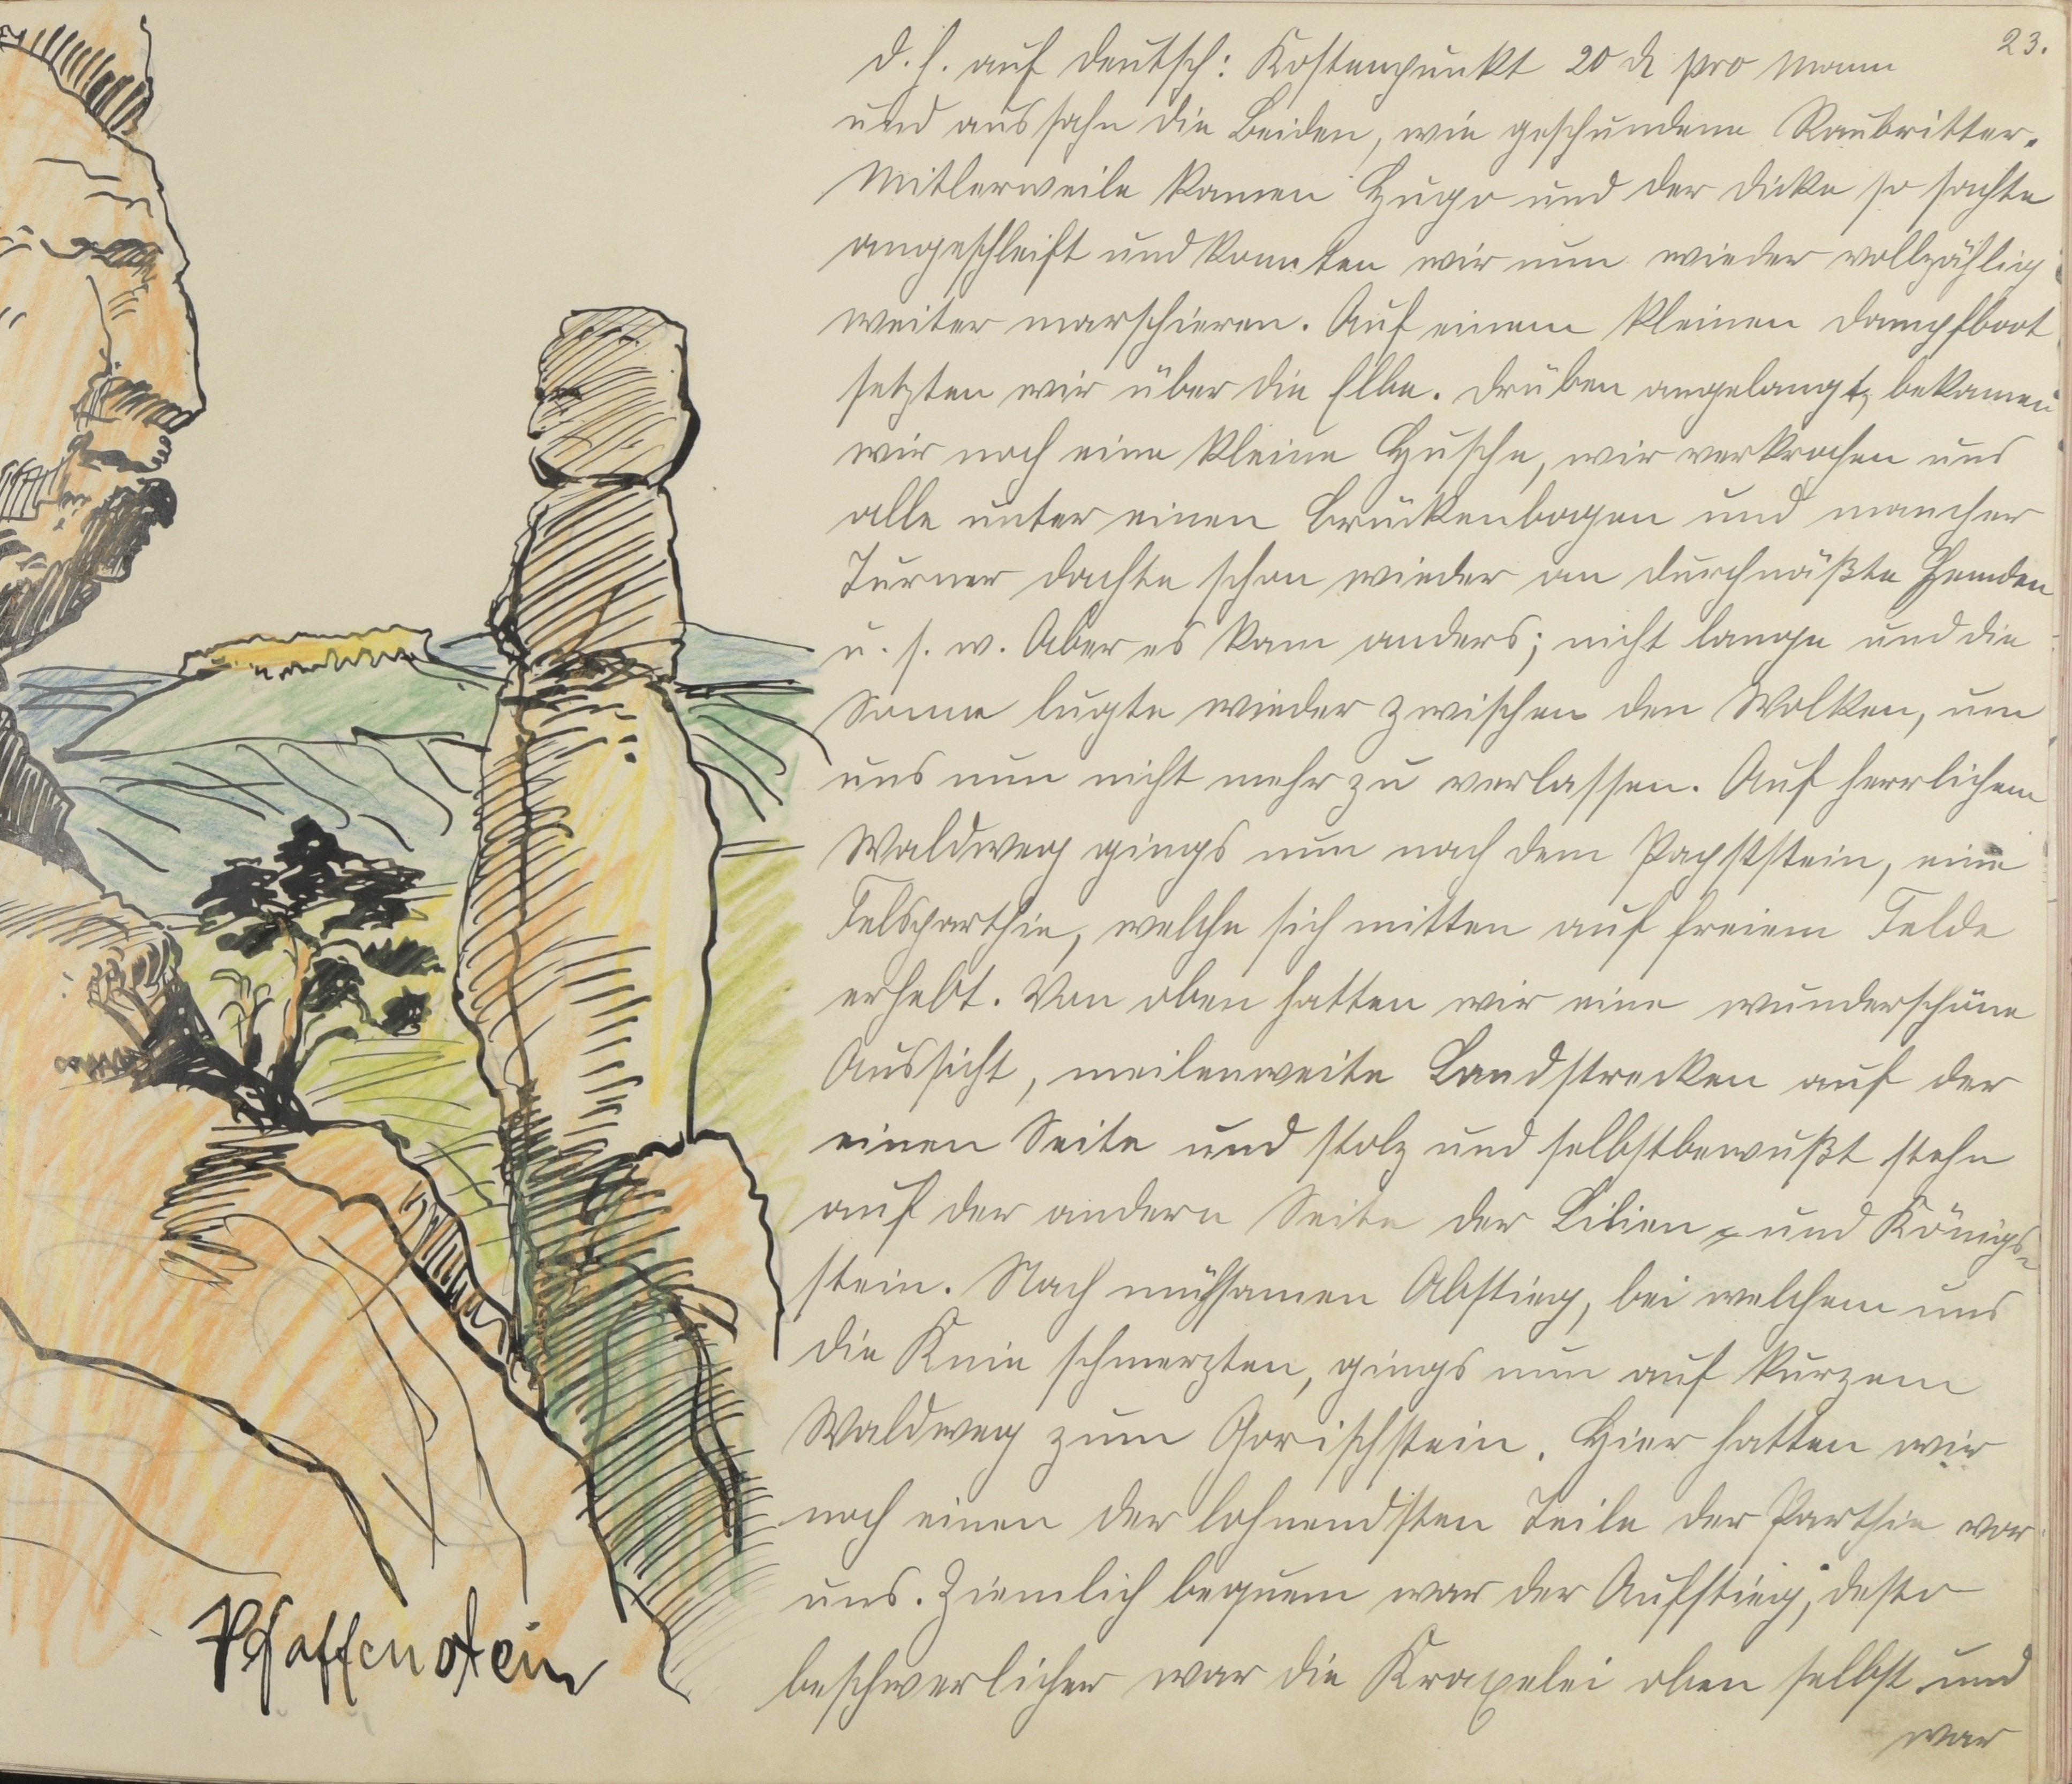 23.
d. h. auf deutsch: Kostenpunkt 20 ₰ pro Mann
und aussahn die Beiden, wie geschundene Raubritter.
Mitlerweile kamen Hugo und der Dicke so sachte
angeschleift und konnten wir nun wieder vollzählig
weiter marschieren. Auf einem kleinen Dampfboot
setzten wir über die Elbe. Drüben angelangt, bekamen
wir noch eine kleine Husche, wir verkrochen uns
alle unter einen Brückenbogen und mancher
Turner dachte schon wieder an durchnäßte Hemden
u. s. w. Aber es kam anders; nicht lange und die
Sonne lugte wieder zwischen den Wolken, um
uns nun nicht mehr zu verlassen. Auf herrlichem
Waldweg gings nun nach dem Papststein, eine
Felsparthie, welche sich mitten auf freiem Felde
erhebt. Von oben hatten wir eine wunderschöne
Aussicht, meilenweite Landstrecken auf der
einen Seite und stolz und selbstbewußt stehn
auf der andern Seite der Lilien- und Königs-
stein. Nach mühsamen Abstieg, bei welchem uns
die Knie schmerzten, gings nun auf kurzem
Waldweg zum Gorischstein. Hier hatten wir
noch einen der lohnendsten Teile der Parthie vor
uns. Ziemlich bequem war der Aufstieg, desto
beschwerlicher war die Kraxelei oben selbst und
war
Pfaffenstein